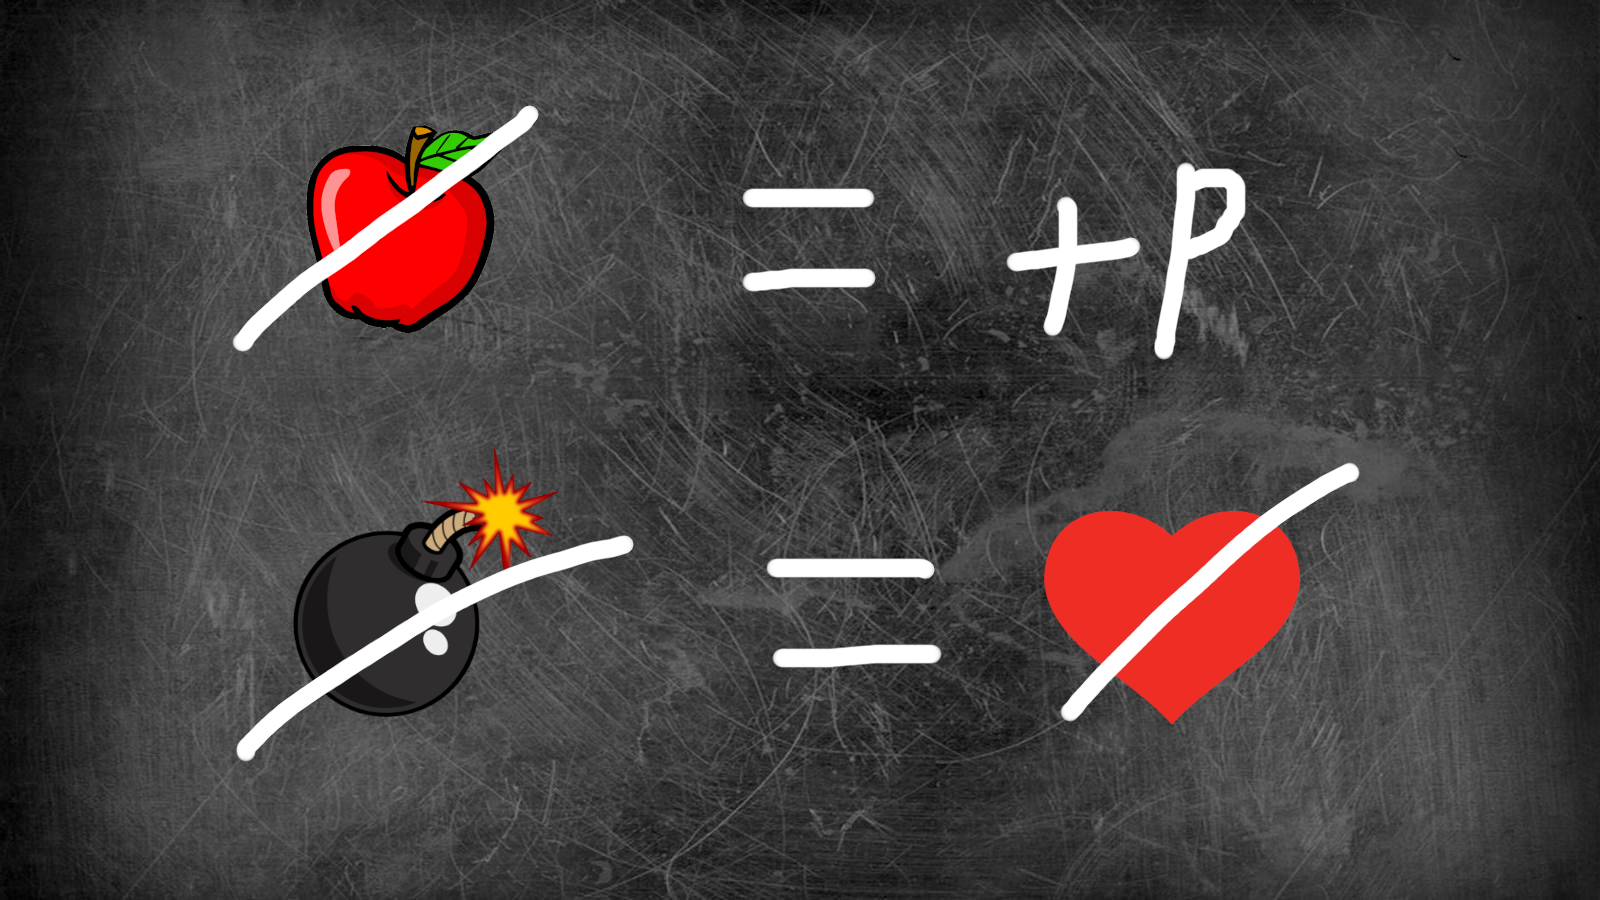 = +P
=